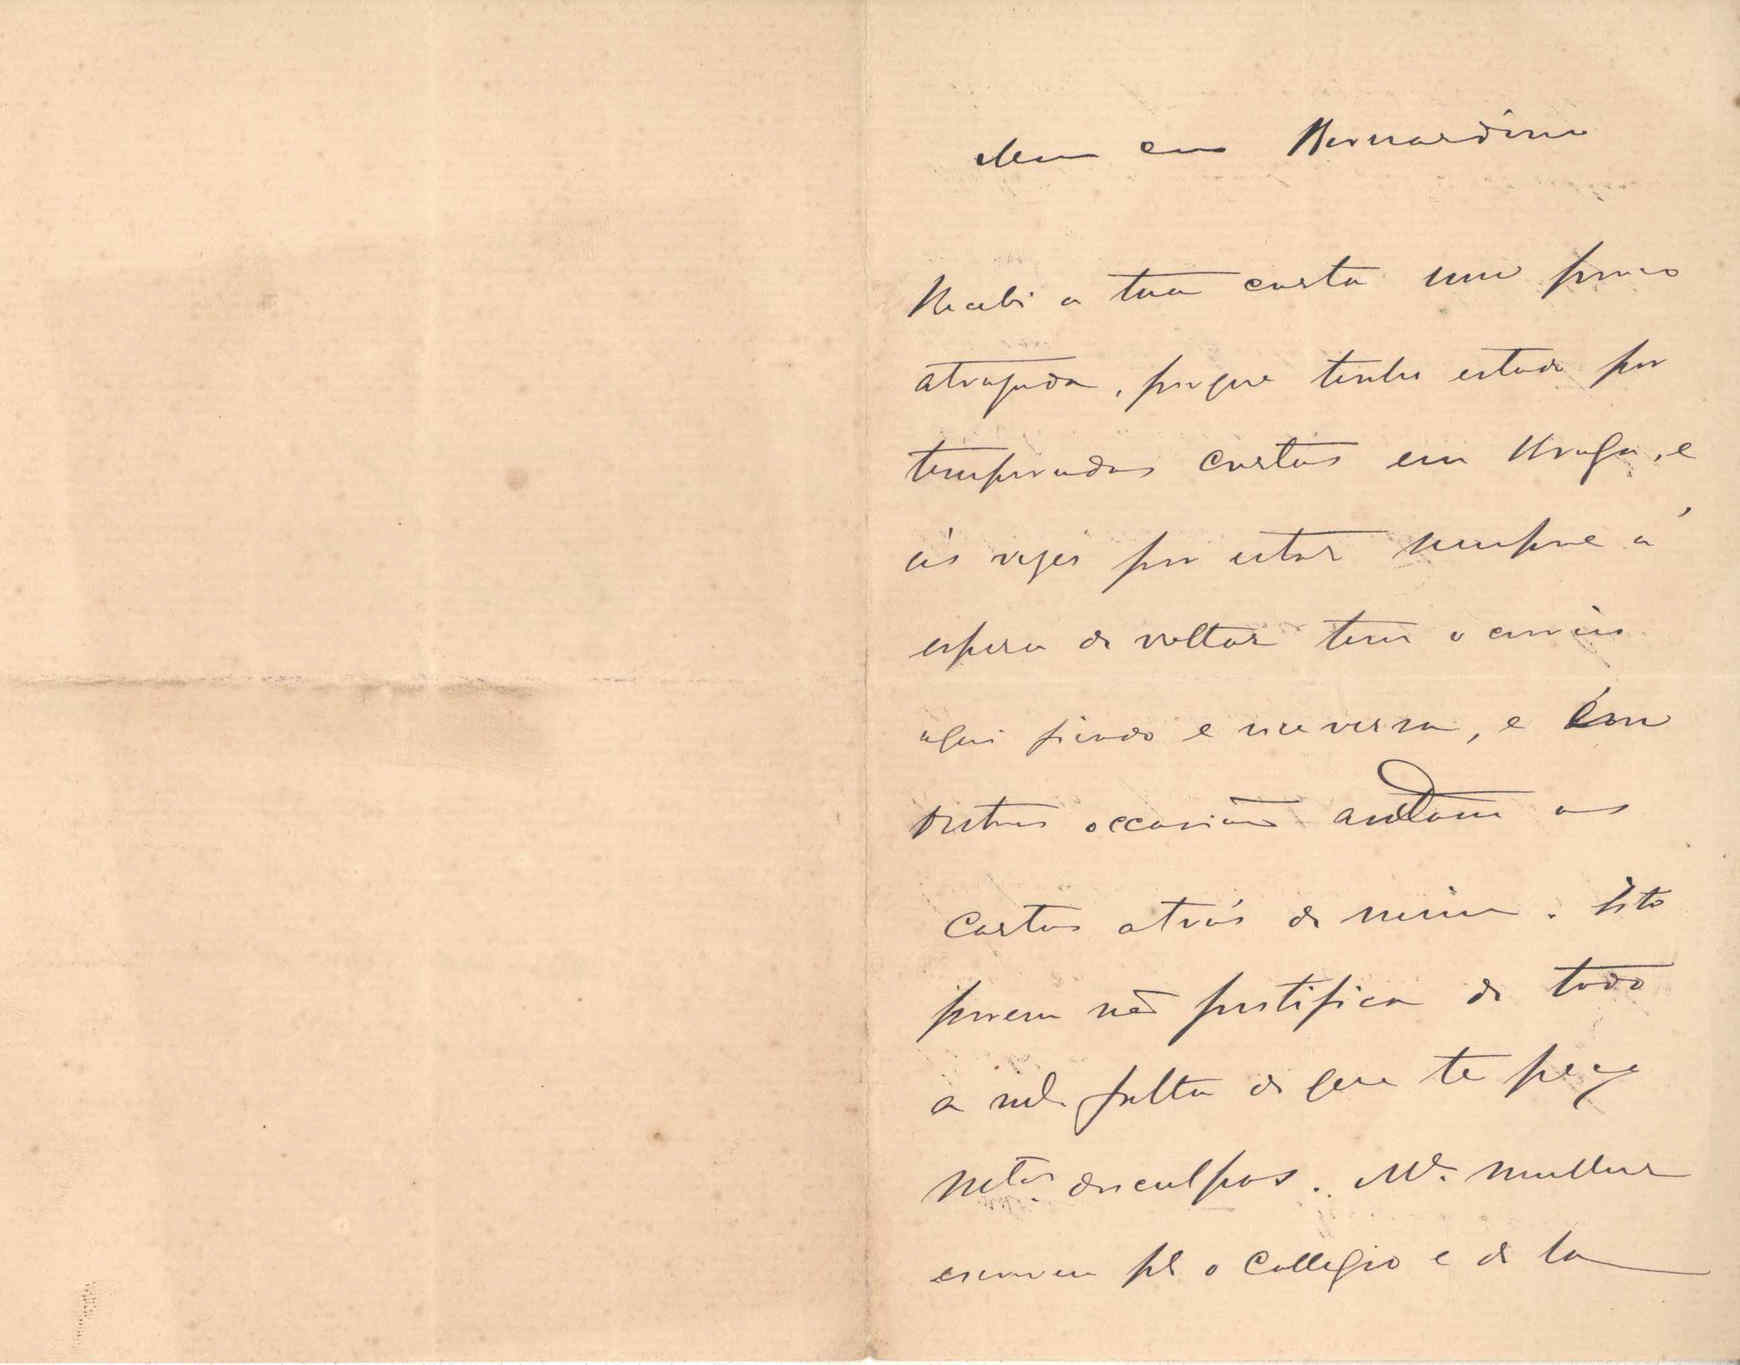 Meu caro Bernardino
Recebi a tua carta um pouco
atrazada, porque tenho estado por
temporadas curtas em Braga, e
ás vezes por estar sempre á
espera de voltar tem o correio
aqui ficado e vice versa, e em
outras occasiões andam as
cartas atrás de mim. Isto
porem não justifica de todo
a mª falta de que te peço
mtas desculpas. Mª mulher
escreveu pª o Collegio e de lá